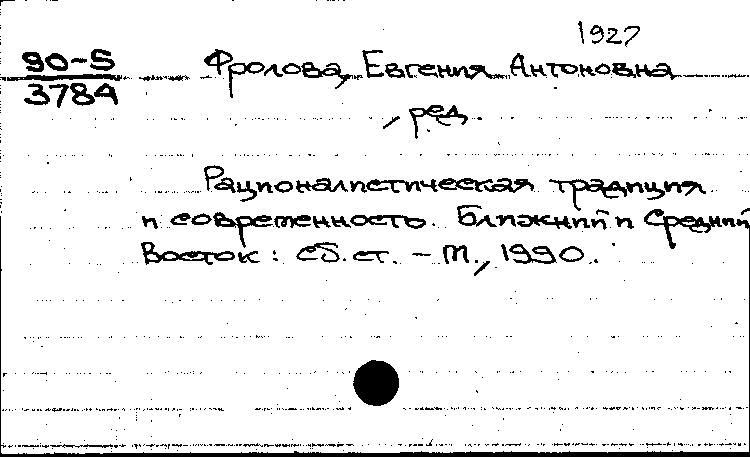 1927
90-5
3784
Фролова, Евгения Антоновна
, ред.
Рационалистическая традиция
и современность. Ближний и Средний
Восток: сб. ст. – М., 1990.